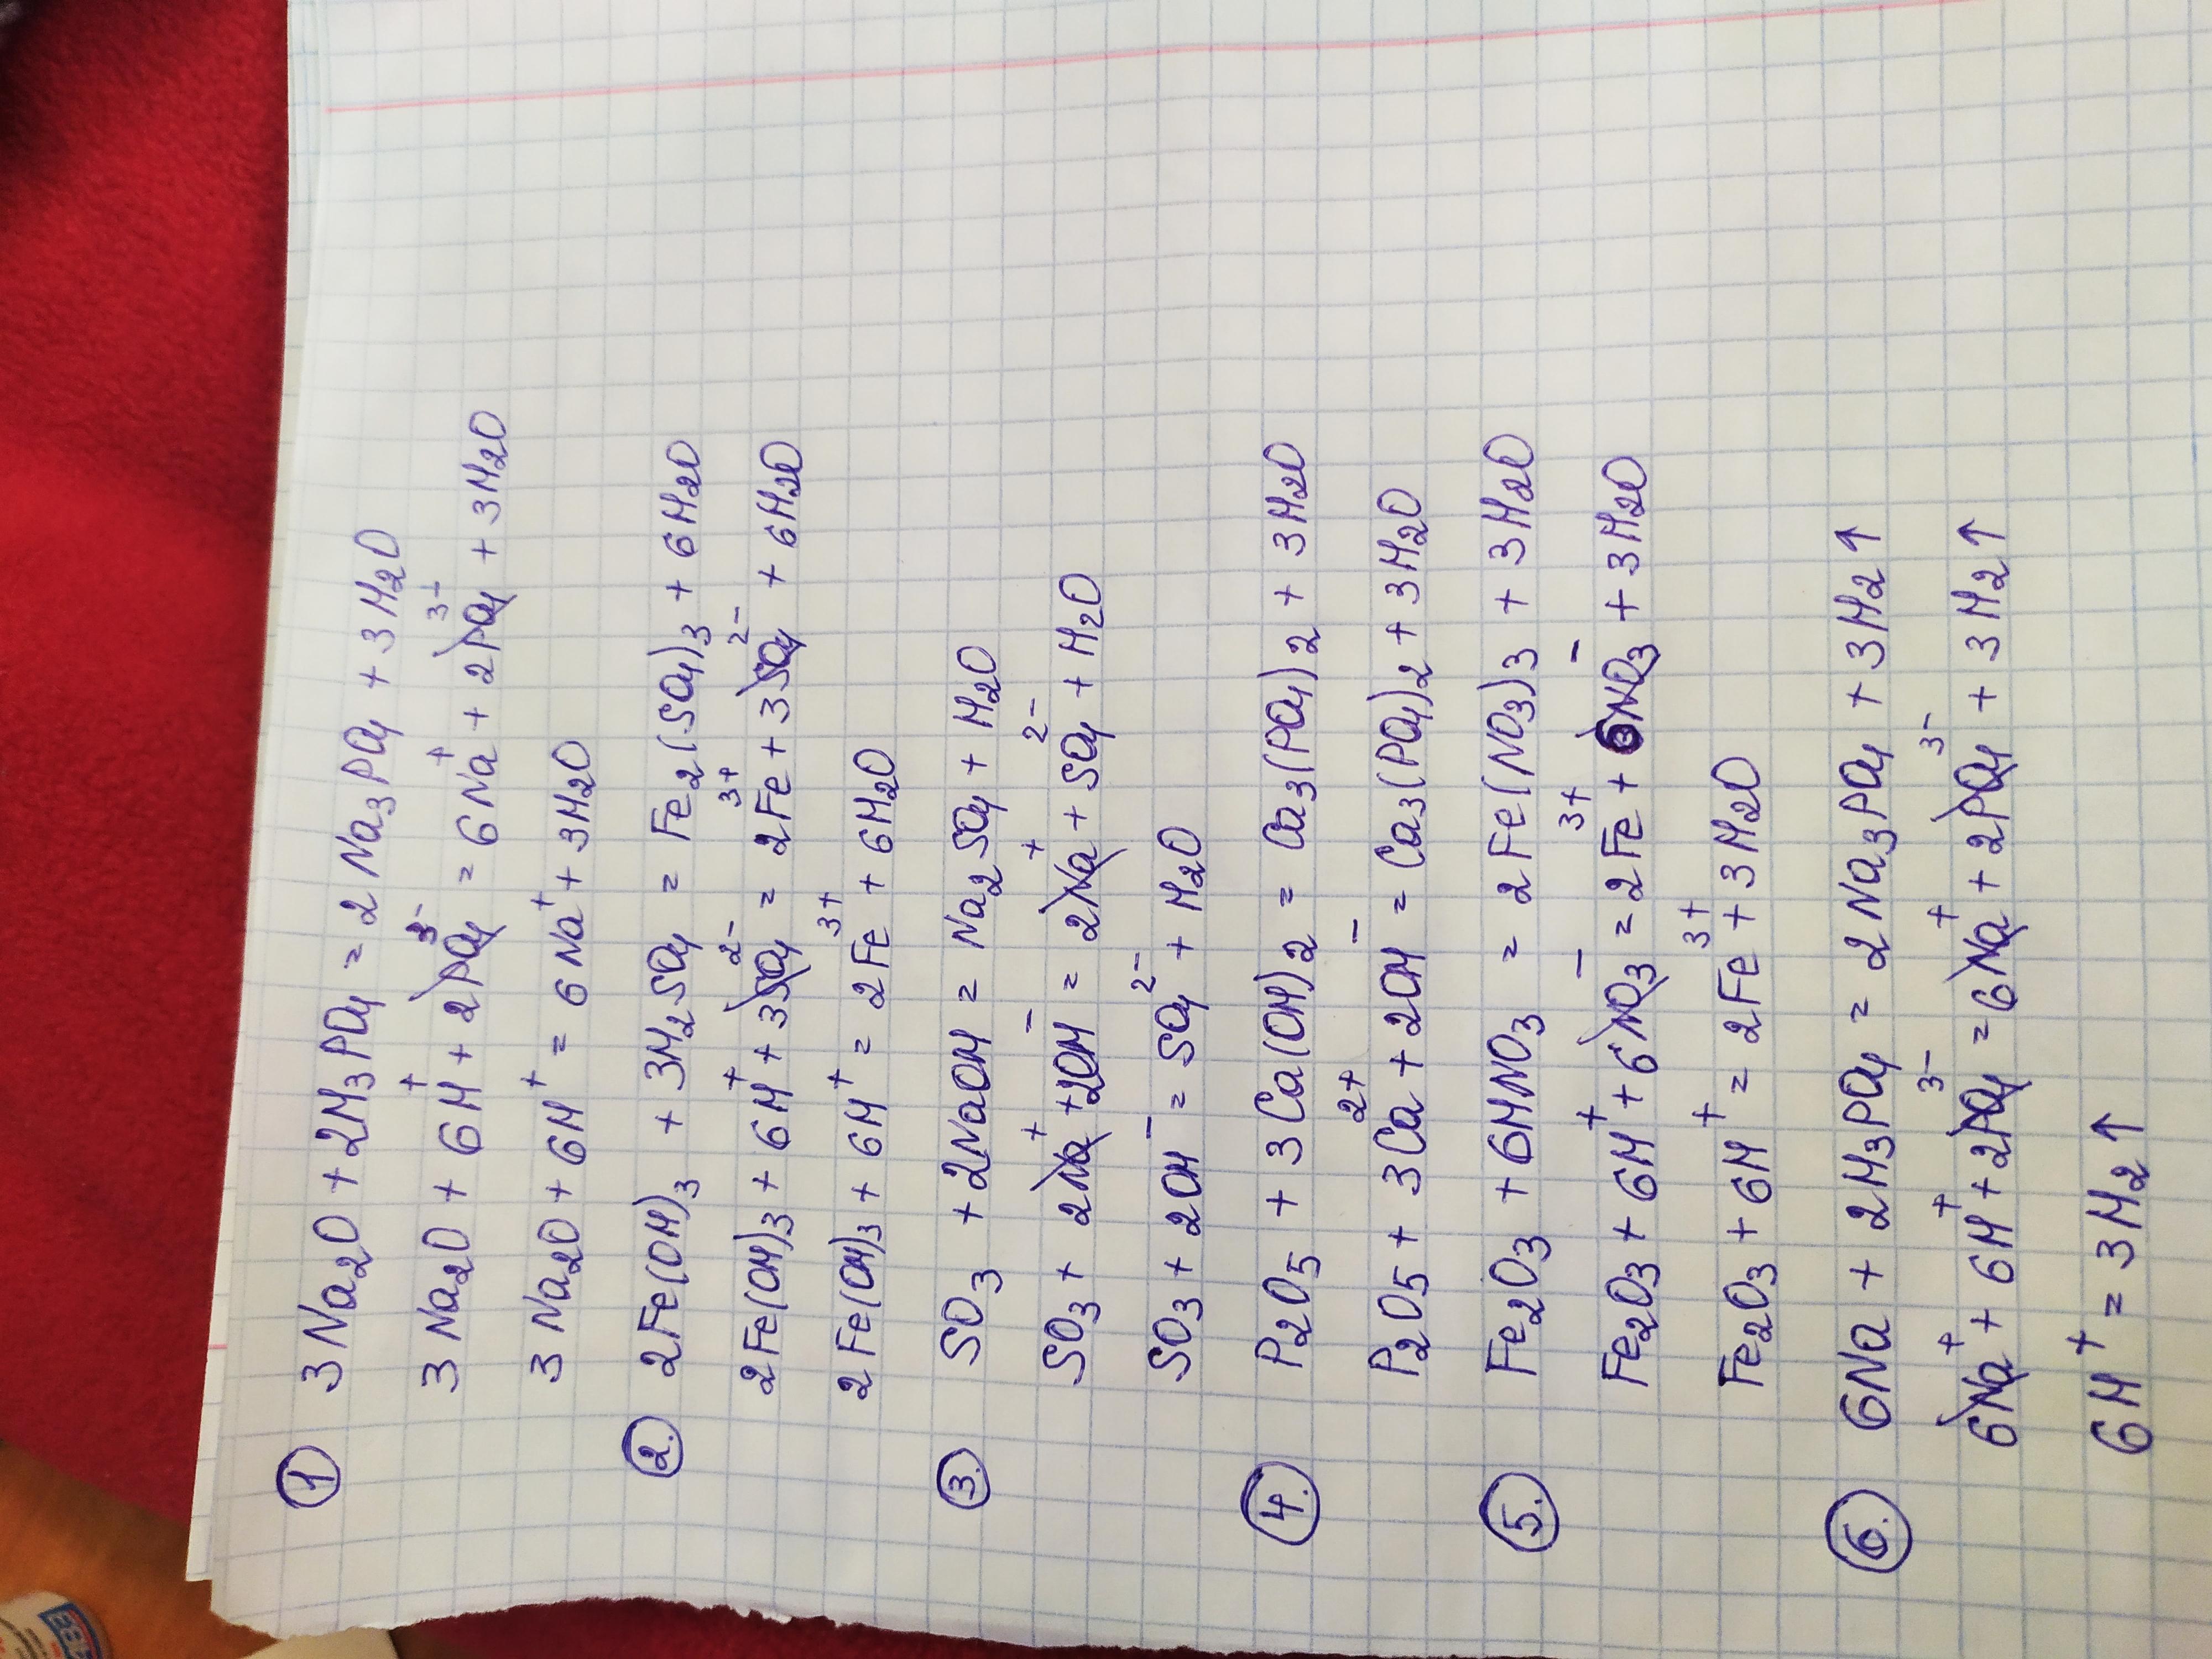 ① 3Na₂O + 2H₃PO₄ = 2Na₃PO₄ + 3H₂O
3Na₂O + 6H⁺ + 2PO₄³⁻ = 6Na⁺ + 2PO₄³⁻ + 3H₂O
3Na₂O + 6H⁺ = 6Na⁺ + 3H₂O
②. 2Fe(OH)₃ + 3H₂SO₄ = Fe₂(SO₄)₃ + 6H₂O
2Fe(OH)₃ + 6H⁺ + 3SO₄²⁻ = 2Fe³⁺ + 3SO₄²⁻ + 6H₂O
2Fe(OH)₃ + 6H⁺ = 2Fe³⁺ + 6H₂O
③. SO₃ + 2NaOH = Na₂SO₄ + H₂O
SO₃ + 2Na⁺ + 2OH⁻ = 2Na⁺ + SO₄²⁻ + H₂O
SO₃ + 2OH⁻ = SO₄²⁻ + H₂O
④. P₂O₅ + 3Ca(OH)₂ = Ca₃(PO₄)₂ + 3H₂O
P₂O₅ + 3Ca²⁺ + 2OH⁻ = Ca₃(PO₄)₂ + 3H₂O
⑤. Fe₂O₃ + 6HNO₃ = 2Fe(NO₃)₃ + 3H₂O
Fe₂O₃ + 6H⁺ + 6NO₃⁻ = 2Fe³⁺ + 6NO₃⁻ + 3H₂O
Fe₂O₃ + 6H⁺ = 2Fe³⁺ + 3H₂O
⑥. 6Na + 2H₃PO₄ = 2Na₃PO₄ + 3H₂↑
6Na⁺ + 6H⁺ + 2PO₄³⁻ = 6Na⁺ + 2PO₄³⁻ + 3H₂↑
6H⁺ = 3H₂↑